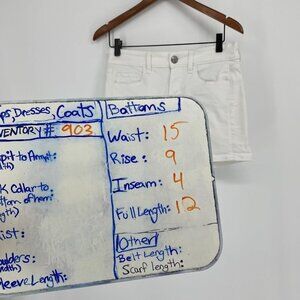 ps, Dresses, Coats
VENTORY # 903
pit to Armpit:
Collar to
ttom of hem
ist:
oulders:
eeveLength:
Bottoms
Waist: 15
Rise: 9
Inseam: 4
Full Length: 12
Other
Belt Length:
Scarf length: